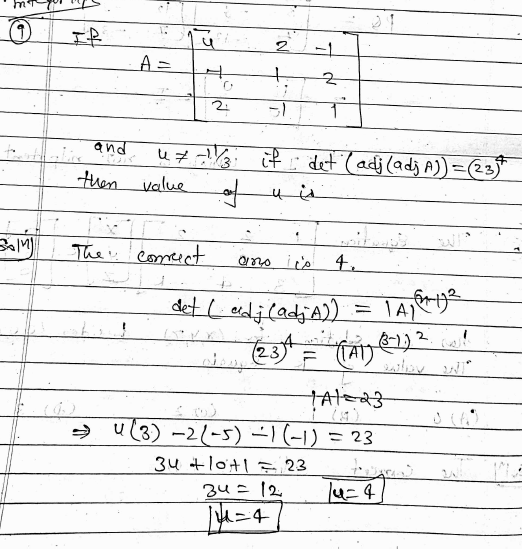 ⑨ If
A = [ u 2 -1
-1 1 2
2 -1 1 ]
and u ≠ -11/3 if det (adj(adj A)) = (23)^4
then value of u is
Sol^n) The correct ans is 4.
det ( adj(adj A)) = |A|^(n-1)^2
(23)^4 = (|A|)^(3-1)^2
|A| = 23
⇒ u(3) -2(-5) -1(-1) = 23
3u + 10 + 1 = 23
3u = 12 u = 4
u = 4